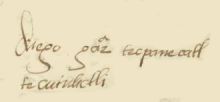 diego garͣ tecpanecatl
tecuiuhtli